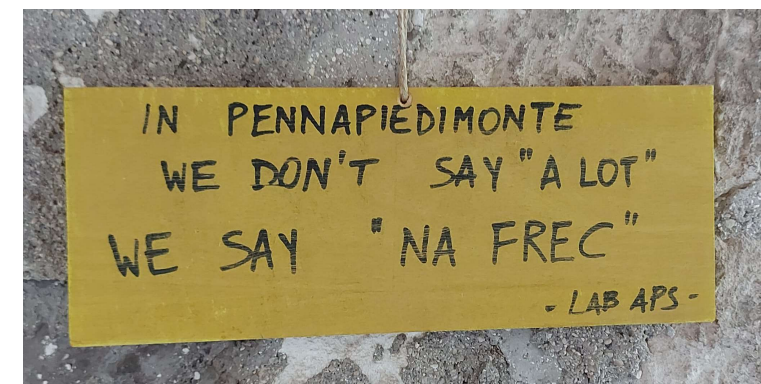 IN PENNAPIEDIMONTE
WE DON'T SAY "A LOT"
WE SAY "NA FREC"
- LAB APS -